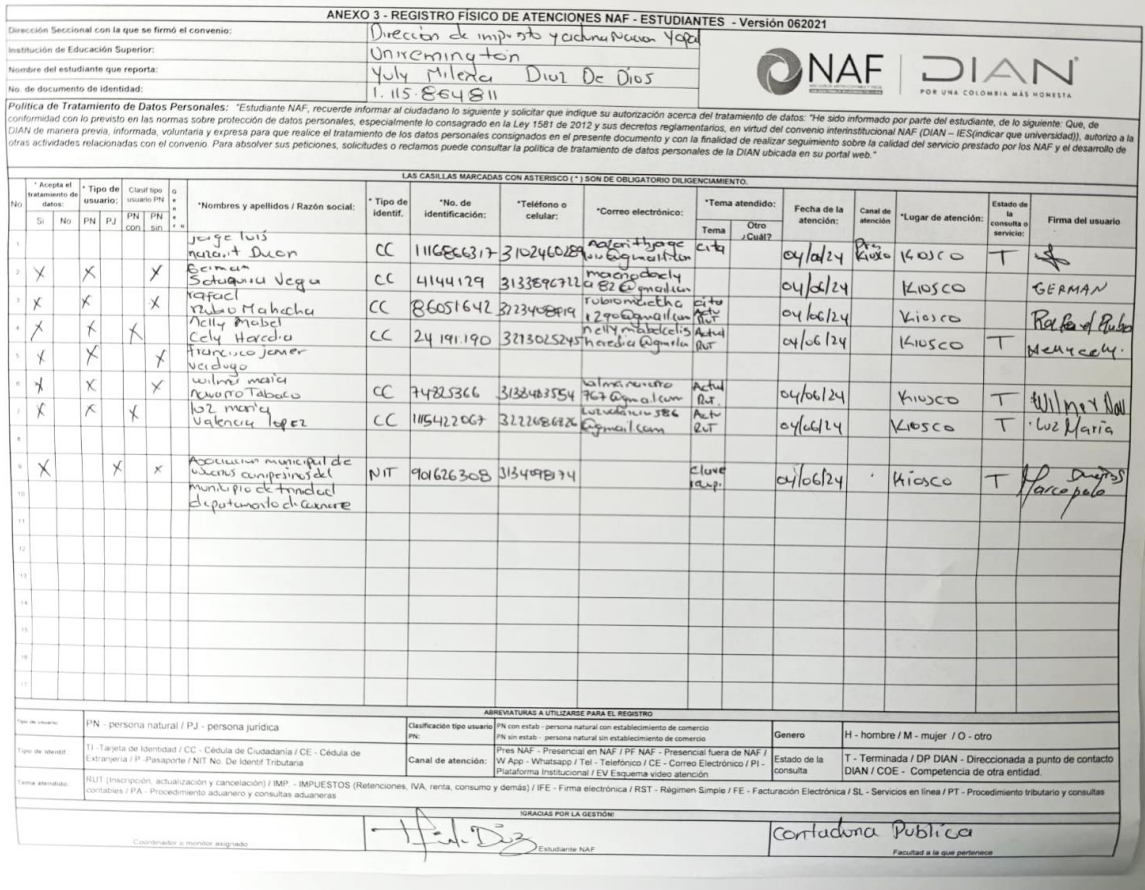 ANEXO 3 - REGISTRO FÍSICO DE ATENCIONES NAF - ESTUDIANTES - Versión 062021
Dirección Seccional con la que se firmó el convenio: Dirección de impusto y aduna Nacion Yopal
Institución de Educación Superior: Uniremington
Nombre del estudiante que reporta: Yuly Milena Diaz De Dios
No. de documento de identidad: 1.115.864811
NAF
DIAN
POR UNA COLOMBIA MÁS HONESTA
Política de Tratamiento de Datos Personales: "Estudiante NAF, recuerde informar al ciudadano lo siguiente y solicitar que indique su autorización acerca del tratamiento de datos: "He sido informado por parte del estudiante, de lo siguiente: Que, de
conformidad con lo previsto en las normas sobre protección de datos personales, especialmente lo consagrado en la Ley 1581 de 2012 y sus decretos reglamentarios, en virtud del convenio interinstitucional NAF (DIAN – IES(indicar que universidad)), autorizo a la
DIAN de manera previa, informada, voluntaria y expresa para que realice el tratamiento de los datos personales consignados en el presente documento y con la finalidad de realizar seguimiento sobre la calidad del servicio prestado por los NAF y el desarrollo de
otras actividades relacionadas con el convenio. Para absolver sus peticiones, solicitudes o reclamos puede consultar la política de tratamiento de datos personales de la DIAN ubicada en su portal web."
LAS CASILLAS MARCADAS CON ASTERISCO ( * ) SON DE OBLIGATORIO DILIGENCIAMIENTO.
No * Acepta el tratamiento de datos: Si No * Tipo de usuario: PN PJ Clasif tipo usuario PN PN con PN sin *Nombres y apellidos / Razón social: * Tipo de identif. *No. de identificación: *Teléfono o celular: *Correo electrónico: *Tema atendido: Tema Otro ¿Cuál? Fecha de la atención: Canal de atención *Lugar de atención: Estado de la consulta o servicio: Firma del usuario
1 Jorge luis CC 1116866317 3102460289 cita 04/06/24 Kiosco T
2 X X X German Vega CC 4144129 3133896722 04/06/24 Kiosco GERMAN
3 X X X rafael rubio Mahecha CC 86051642 cita Actu RUT 04/06/24 Kiosco Rafael Rubio
4 X X X Nelly Mabel Cely Heredia CC 24 191.190 3213025245 Actud RUT 04/06/24 Kiosco T Nelly cely.
5 X X X francisco javier verdugo
6 X X X wilmer maria navarro Tabaco CC 74825366 3138483554 Actud Rut. 04/06/24 Kiosco T Wilmer Nav
7 X X X luz maria valencia lopez CC 1115422067 3222686826 Actu RUT 04/06/24 Kiosco T Luz Maria
8
9 X X X Asociacion municipal de usuarios campesinos del NIT 901626308 3134098174 clave 04/06/24 Kiosco T Marco polo
10 municipio de trinidad departamento de casanare
11
12
13
14
15
16
17
ABREVIATURAS A UTILIZARSE PARA EL REGISTRO
Tipo de usuario: PN - persona natural / PJ - persona jurídica
Clasificación tipo usuario PN: PN con estab - persona natural con establecimiento de comercio
PN sin estab - persona natural sin establecimiento de comercio
Genero H - hombre / M - mujer / O - otro
Tipo de identif. TI -Tarjeta de Identidad / CC - Cédula de Ciudadanía / CE - Cédula de
Extranjería / P -Pasaporte / NIT No. De Identif Tributaria
Canal de atención: Pres NAF - Presencial en NAF / PF NAF - Presencial fuera de NAF /
W App - Whatsapp / Tel - Telefónico / CE - Correo Electrónico / PI -
Plataforma Institucional / EV Esquema video atención
Estado de la consulta T - Terminada / DP DIAN - Direccionada a punto de contacto
DIAN / COE - Competencia de otra entidad.
Tema atendido: RUT (Inscripción, actualización y cancelación) / IMP. - IMPUESTOS (Retenciones, IVA, renta, consumo y demás) / IFE - Firma electrónica / RST - Régimen Simple / FE - Facturación Electrónica / SL - Servicios en línea / PT - Procedimiento tributario y consultas
contables / PA - Procedimiento aduanero y consultas aduaneras
!GRACIAS POR LA GESTIÓN!
Coordinador o monitor asignado
Estudiante NAF
Contaduria Publica
Facultad a la que pertenece